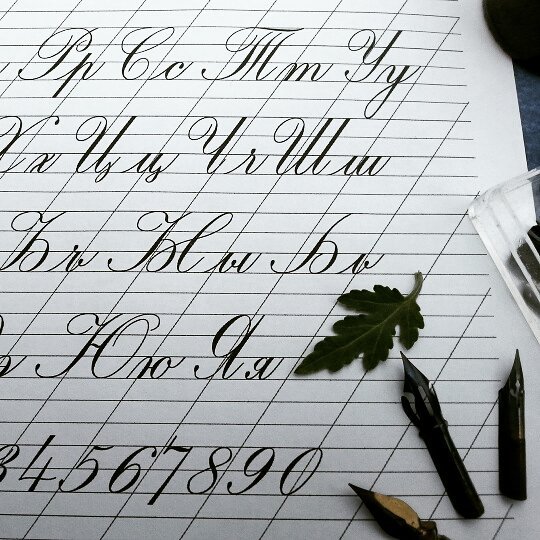 Рр Сс Тт Уу
Хх Цц Чч Шш
Ъъ Ыы Ьь
Юю Яя
34567890